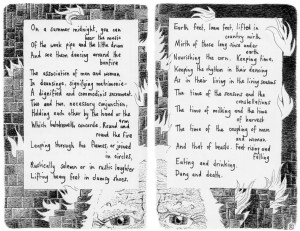 On a summer midnight, you can
hear the music
Of the weak pipe and the little drum
And see them dancing around the
bonfire
The association of man and woman
In daunsinge, signifying matrimonie -
A dignified and commodiois sacrament.
Two and two, necessary conjunction,
Holding eche other by the hand or the
arm
Which betokeneth concorde. Round and
round the fire
Leaping through the flames, or joined
in circles,
Rustically solemn or in rustic laughter
Lifting heavy feet in clumsy shoes,
Earth feet, loam feet, lifted in
country mirth
Mirth of those long since under
earth
Nourishing the corn. Keeping time,
Keeping the rhythm in their dancing
As in their living in the living seasons
The time of the seasons and the
constellations
The time of milking and the time
of harvest
The time of the coupling of man
and woman
And that of beasts. Feet rising and
falling
Eating and drinking.
Dung and death.